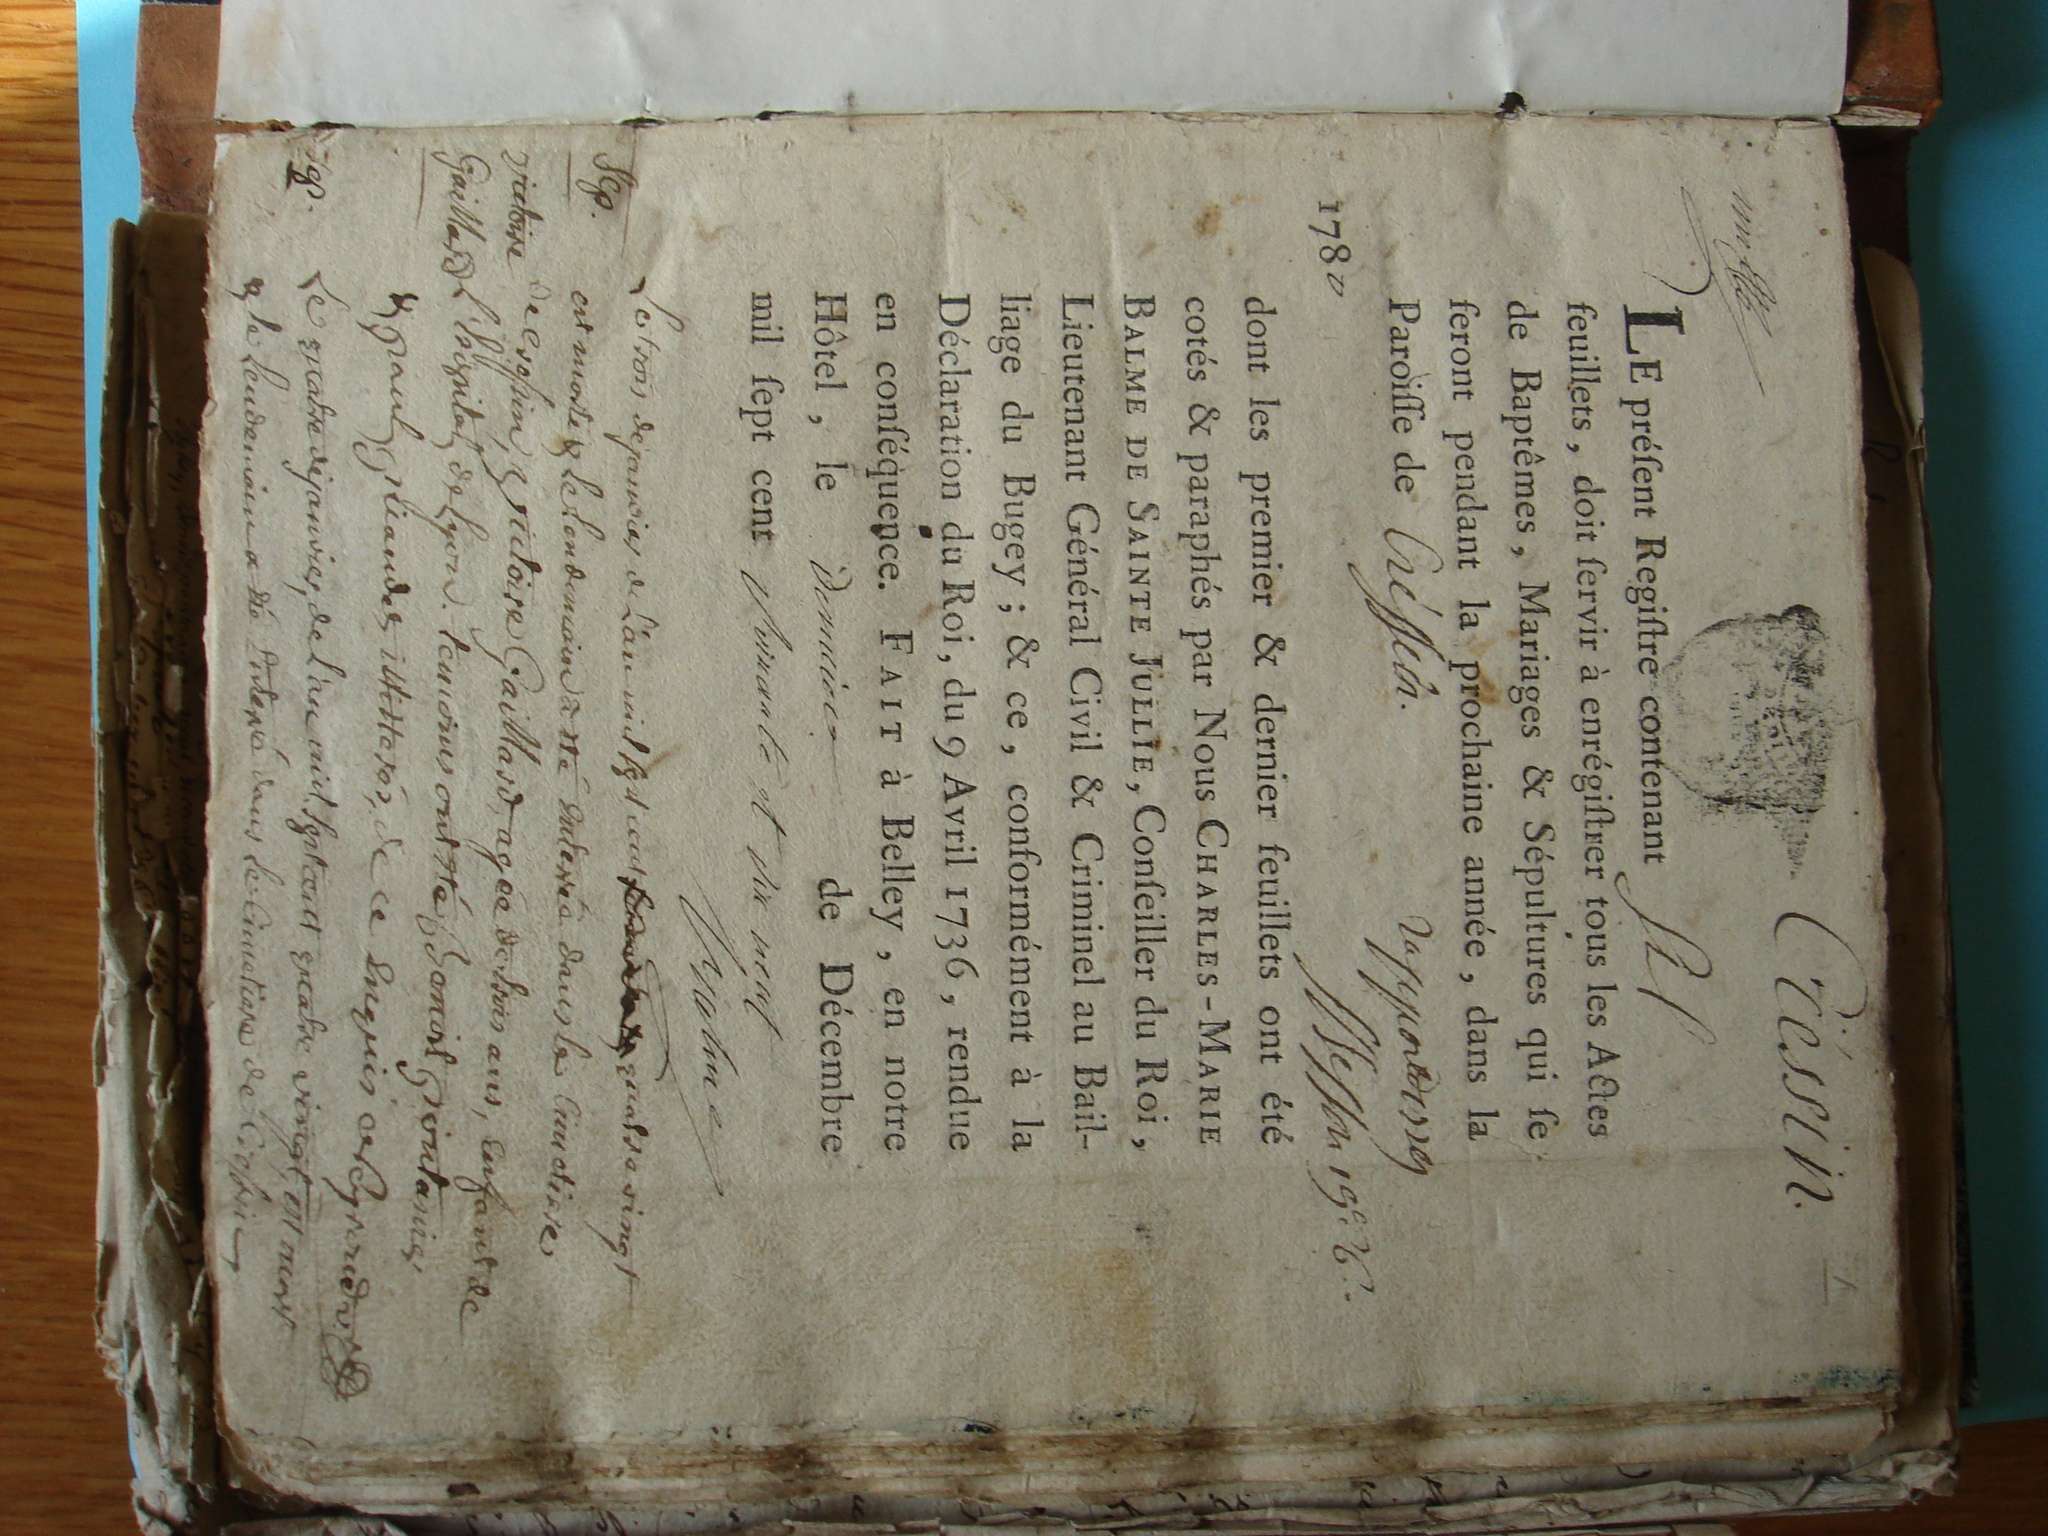 Cressin.
1
LE préſent Regiſtre contenant
feuillets, doit ſervir à enrégiſtrer tous les Actes
de Baptêmes, Mariages & Sépultures qui ſe
feront pendant la prochaine année, dans la
Paroiſſe de Créſſein.
1780
dont les premier & dernier feuillets ont été
cotés & paraphés par Nous CHARLES-MARIE
BALME DE SAINTE JULLIE, Conſeiller du Roi,
Lieutenant Général Civil & Criminel au Bail-
liage du Bugey; & ce, conformément à la
Déclaration du Roi, du 9 Avril 1736, rendue
en conſéquence. FAIT à Belley, en notre
Hôtel, le de Décembre
mil ſept cent soixante et dix neuf
Balme
Le trois de janvier de l'an mil sept cent quatre vingt
Sep.
est morte et le lendemain a été enterrée dans le cimetiere
victoire de Cressin, victoire Gaillard, agée de ans, enfant de
Gaillard l'hôpital de Lyon. temoins ont été
illitterés, de ce enquis et
Le quatre de janvier, de l'an mil sept cent quatre vingt, est mort
Sep.
et le lendemain a été enterré dans le cimetiere de Cressin